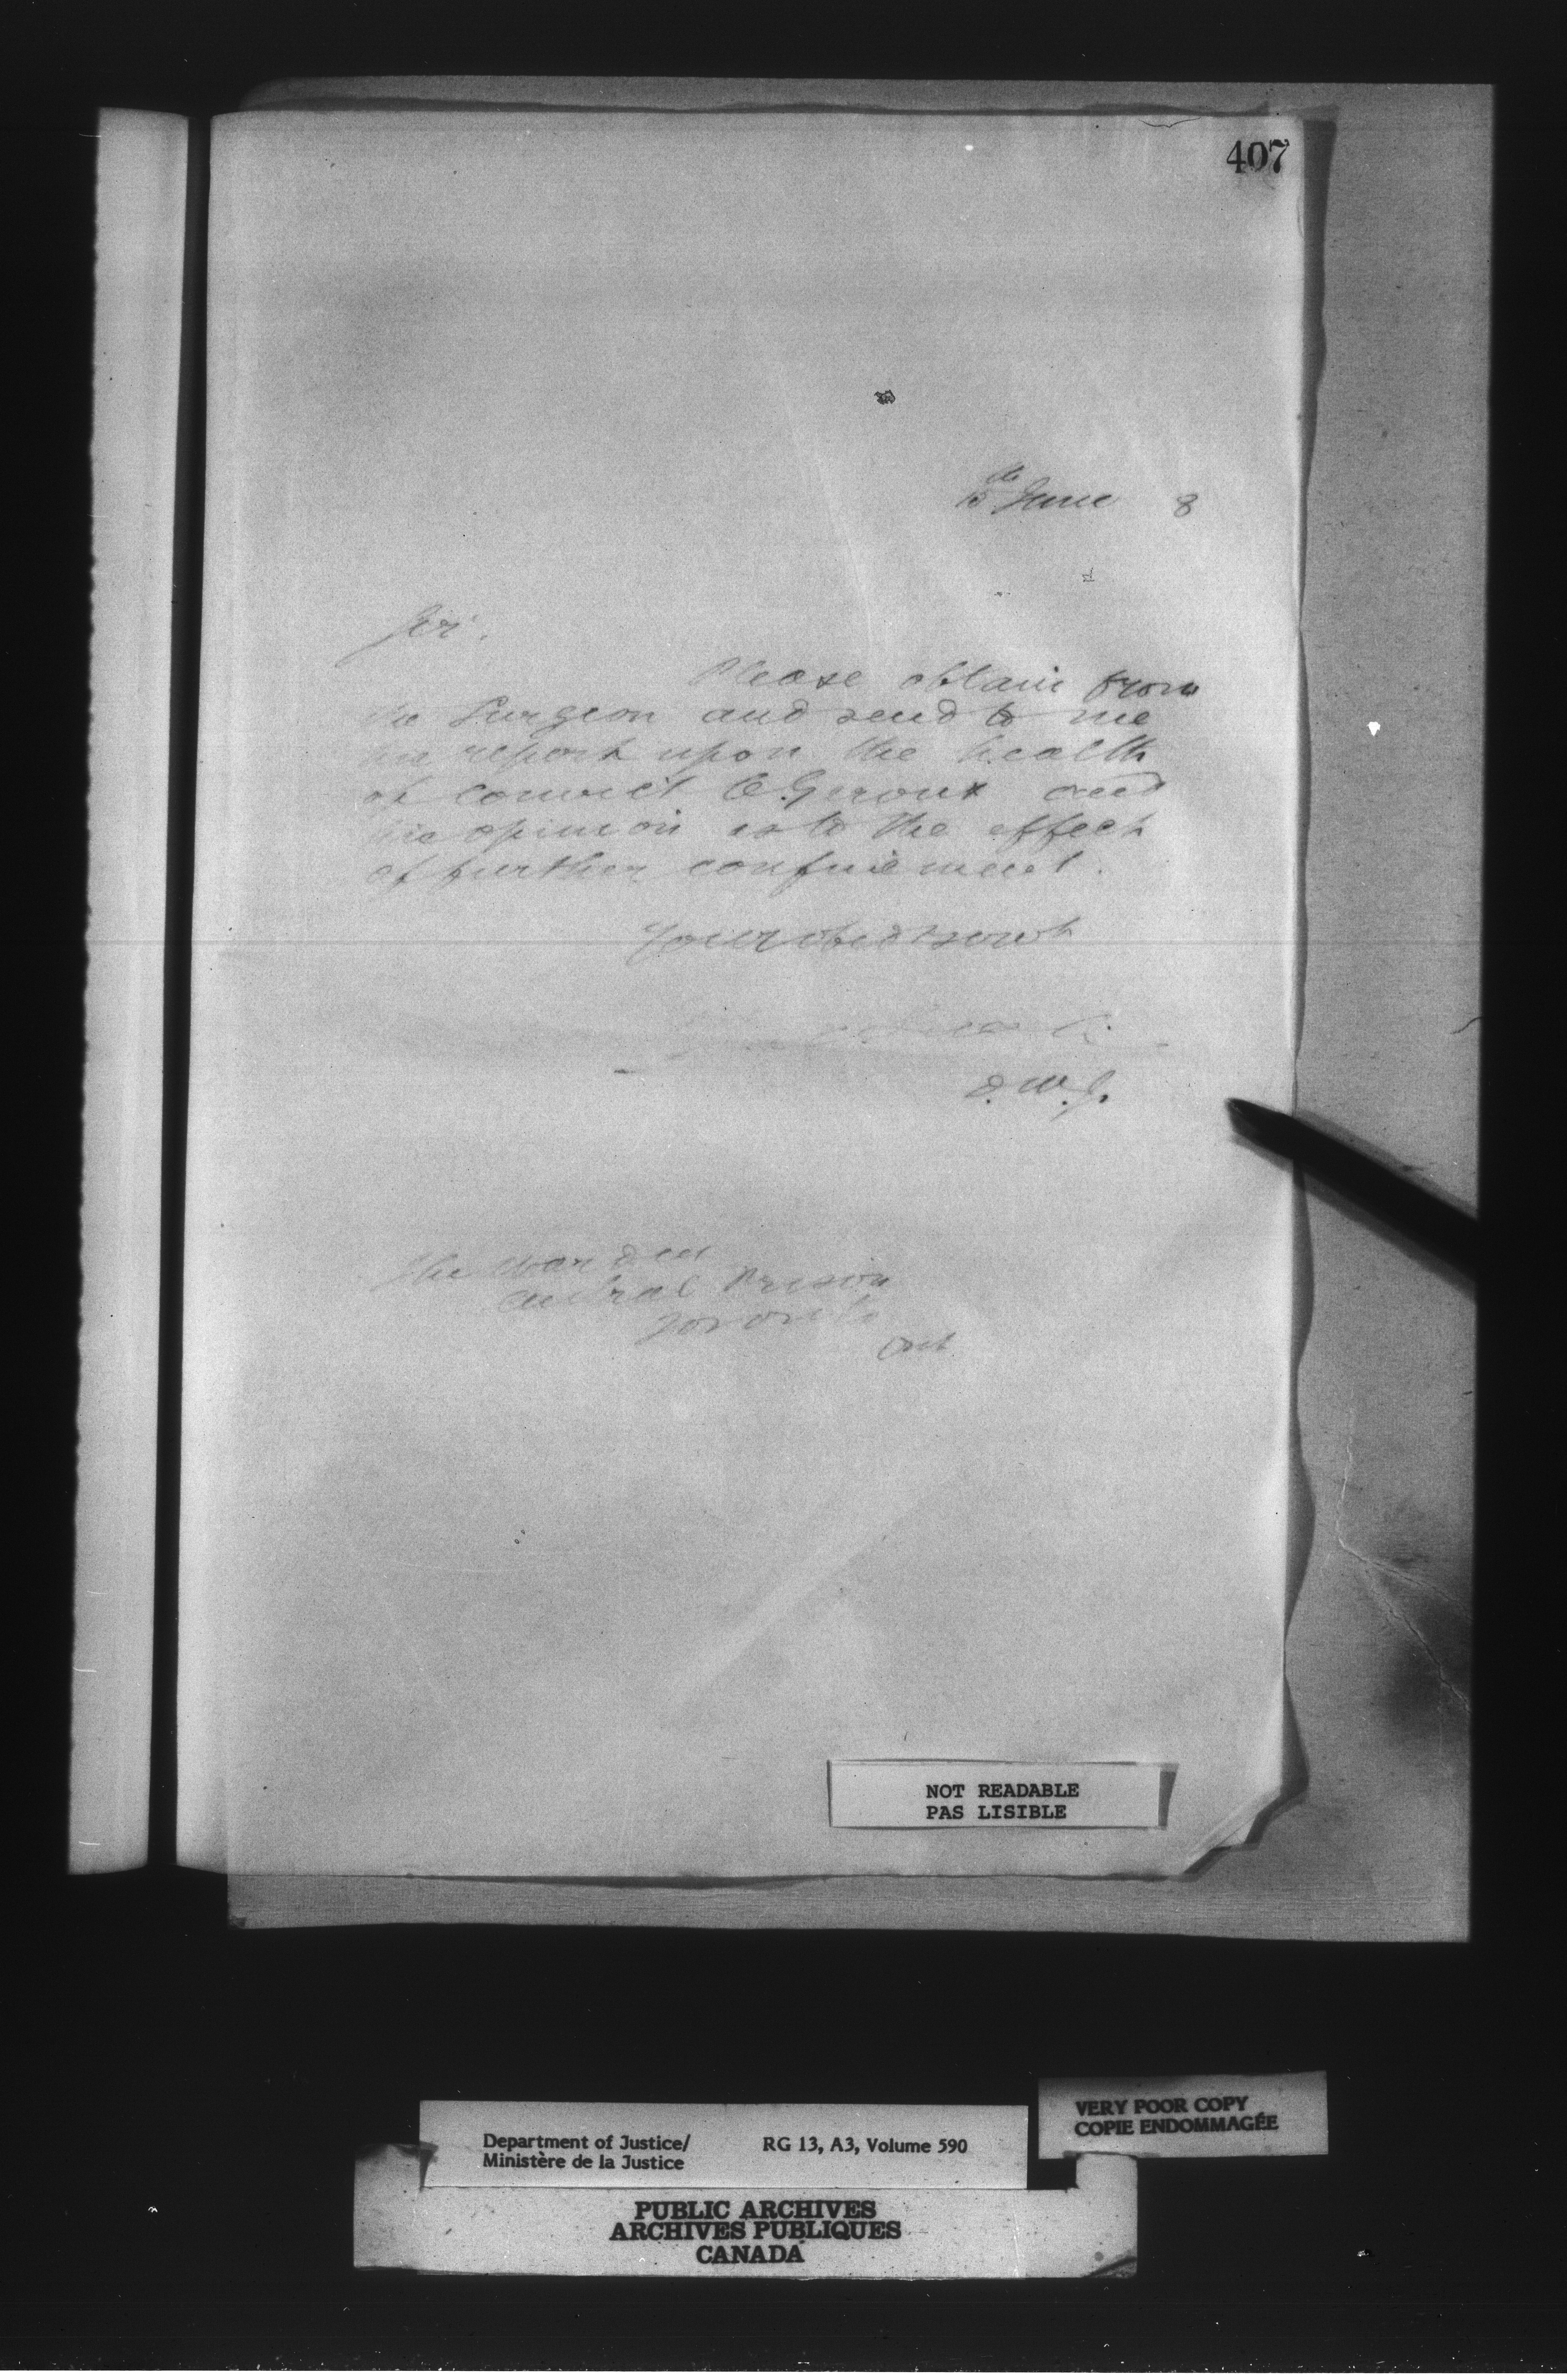 407
15th June 8
Sir.
Please obtain from
the Surgeon and send to me
his report upon the health
of convict O. Giroux and
his opinion as to the effect
of further confinement.
Your obed servt
D. M. J.
The Warden
Central Prison
Toronto
Ont
NOT READABLE
PAS LISIBLE
VERY POOR COPY
COPIE ENDOMMAGÉE
Department of Justice/ RG 13, A3, Volume 590
Ministère de la Justice
PUBLIC ARCHIVES
ARCHIVES PUBLIQUES
CANADA